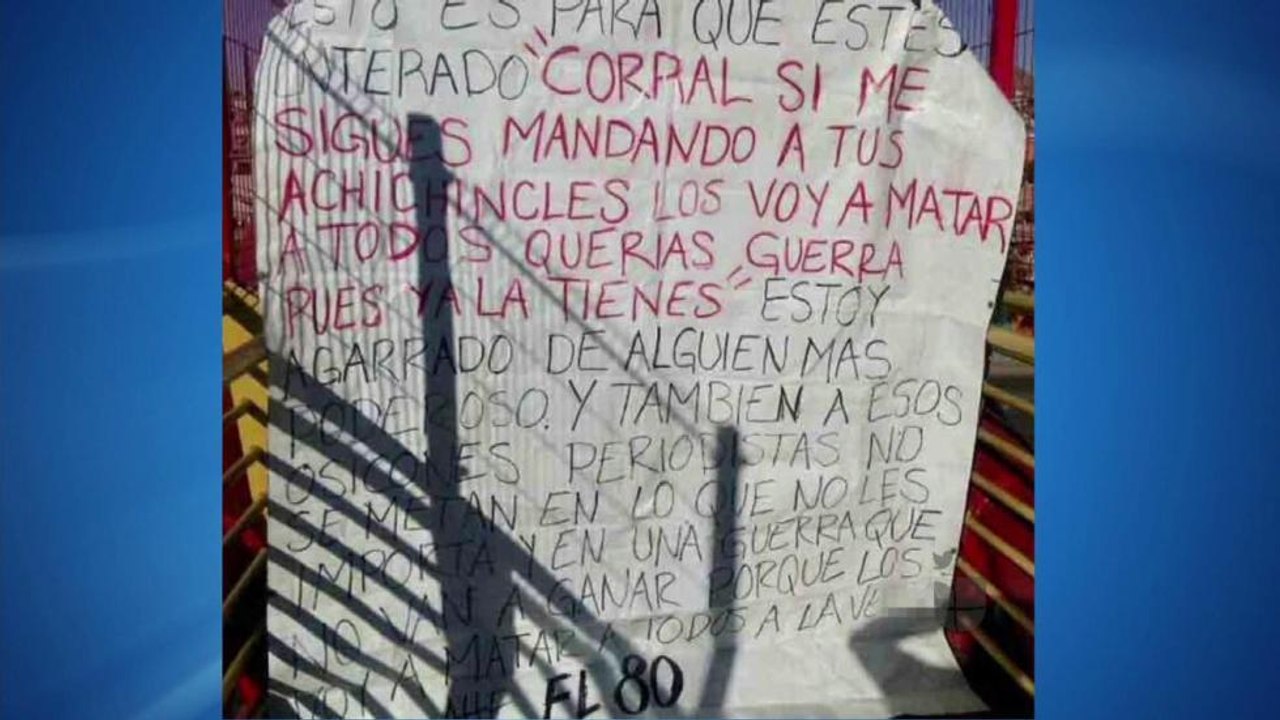 ESTO ES PARA QUE ESTES
"CORRAL SI ME
SIGUES MANDANDO A TUS
ACHICHINCLES LOS VOY A MATAR
A TODOS QUERIAS GUERRA
PUES YA LA TIENES" ESTOY
AGARRADO DE ALGUIEN MAS
PODEROSO. Y TAMBIEN A ESOS
OSICONES PERIODISTAS NO
SE METAN EN LO QUE NO LES
IMPORTA Y EN UNA GUERRA QUE
NO VAN A GANAR PORQUE LOS
VOY A MATAR A TODOS A LA VE
EL 80